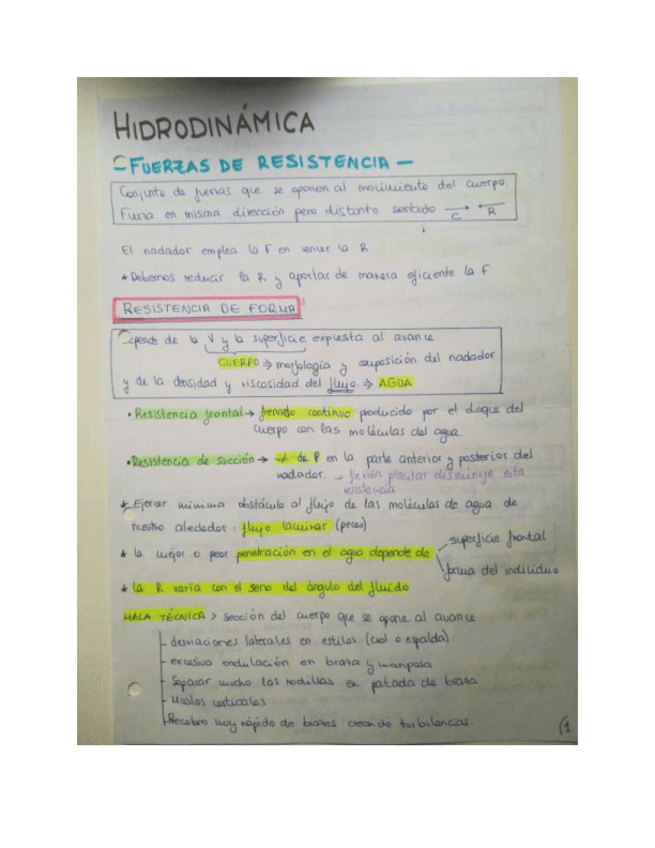 HIDRODINÁMICA
- FUERZAS DE RESISTENCIA -
Conjunto de fuerzas que se oponen al movimiento del cuerpo.
Fuerza en misma dirección pero distinto sentido → C ← R
El nadador emplea la F en vencer la R
* Debemos reducir la R y aportar de manera eficiente la F
RESISTENCIA DE FORMA
Depende de la V y la superficie expuesta al avance
CUERPO → morfología y composición del nadador
y de la densidad y viscosidad del flujo. → AGUA
• Resistencia frontal → frenado continuo producido por el choque del
cuerpo con las moléculas del agua.
• Resistencia de succión → ≠ de P en la parte anterior y posterior del
nadador. → flexión plantar disminuye esta
resistencia
* Ejercer mínima obstáculo al flujo de las moléculas de agua de
nuestro alrededor: flujo laminar (peces)
* la mejor o peor penetración en el agua depende de
superficie frontal
forma del individuo
* la R varía con el seno del ángulo del fluido
MALA TÉCNICA > sección del cuerpo que se opone al avance
- desviaciones laterales en estilos (crol o espalda)
- excesiva ondulación en braza y mariposa
- Separar mucho las rodillas en patada de braza
- Muslos verticales
- Recobro muy rápido de brazos creando turbulencias.
(1